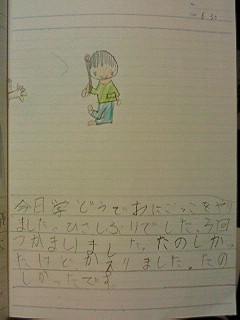 6.30
今日学どうでおにごっこをやり
ました。ひさしぶりでした。3回
つかまりました。たのしかっ
たけどかえりました。たの
しかったです。